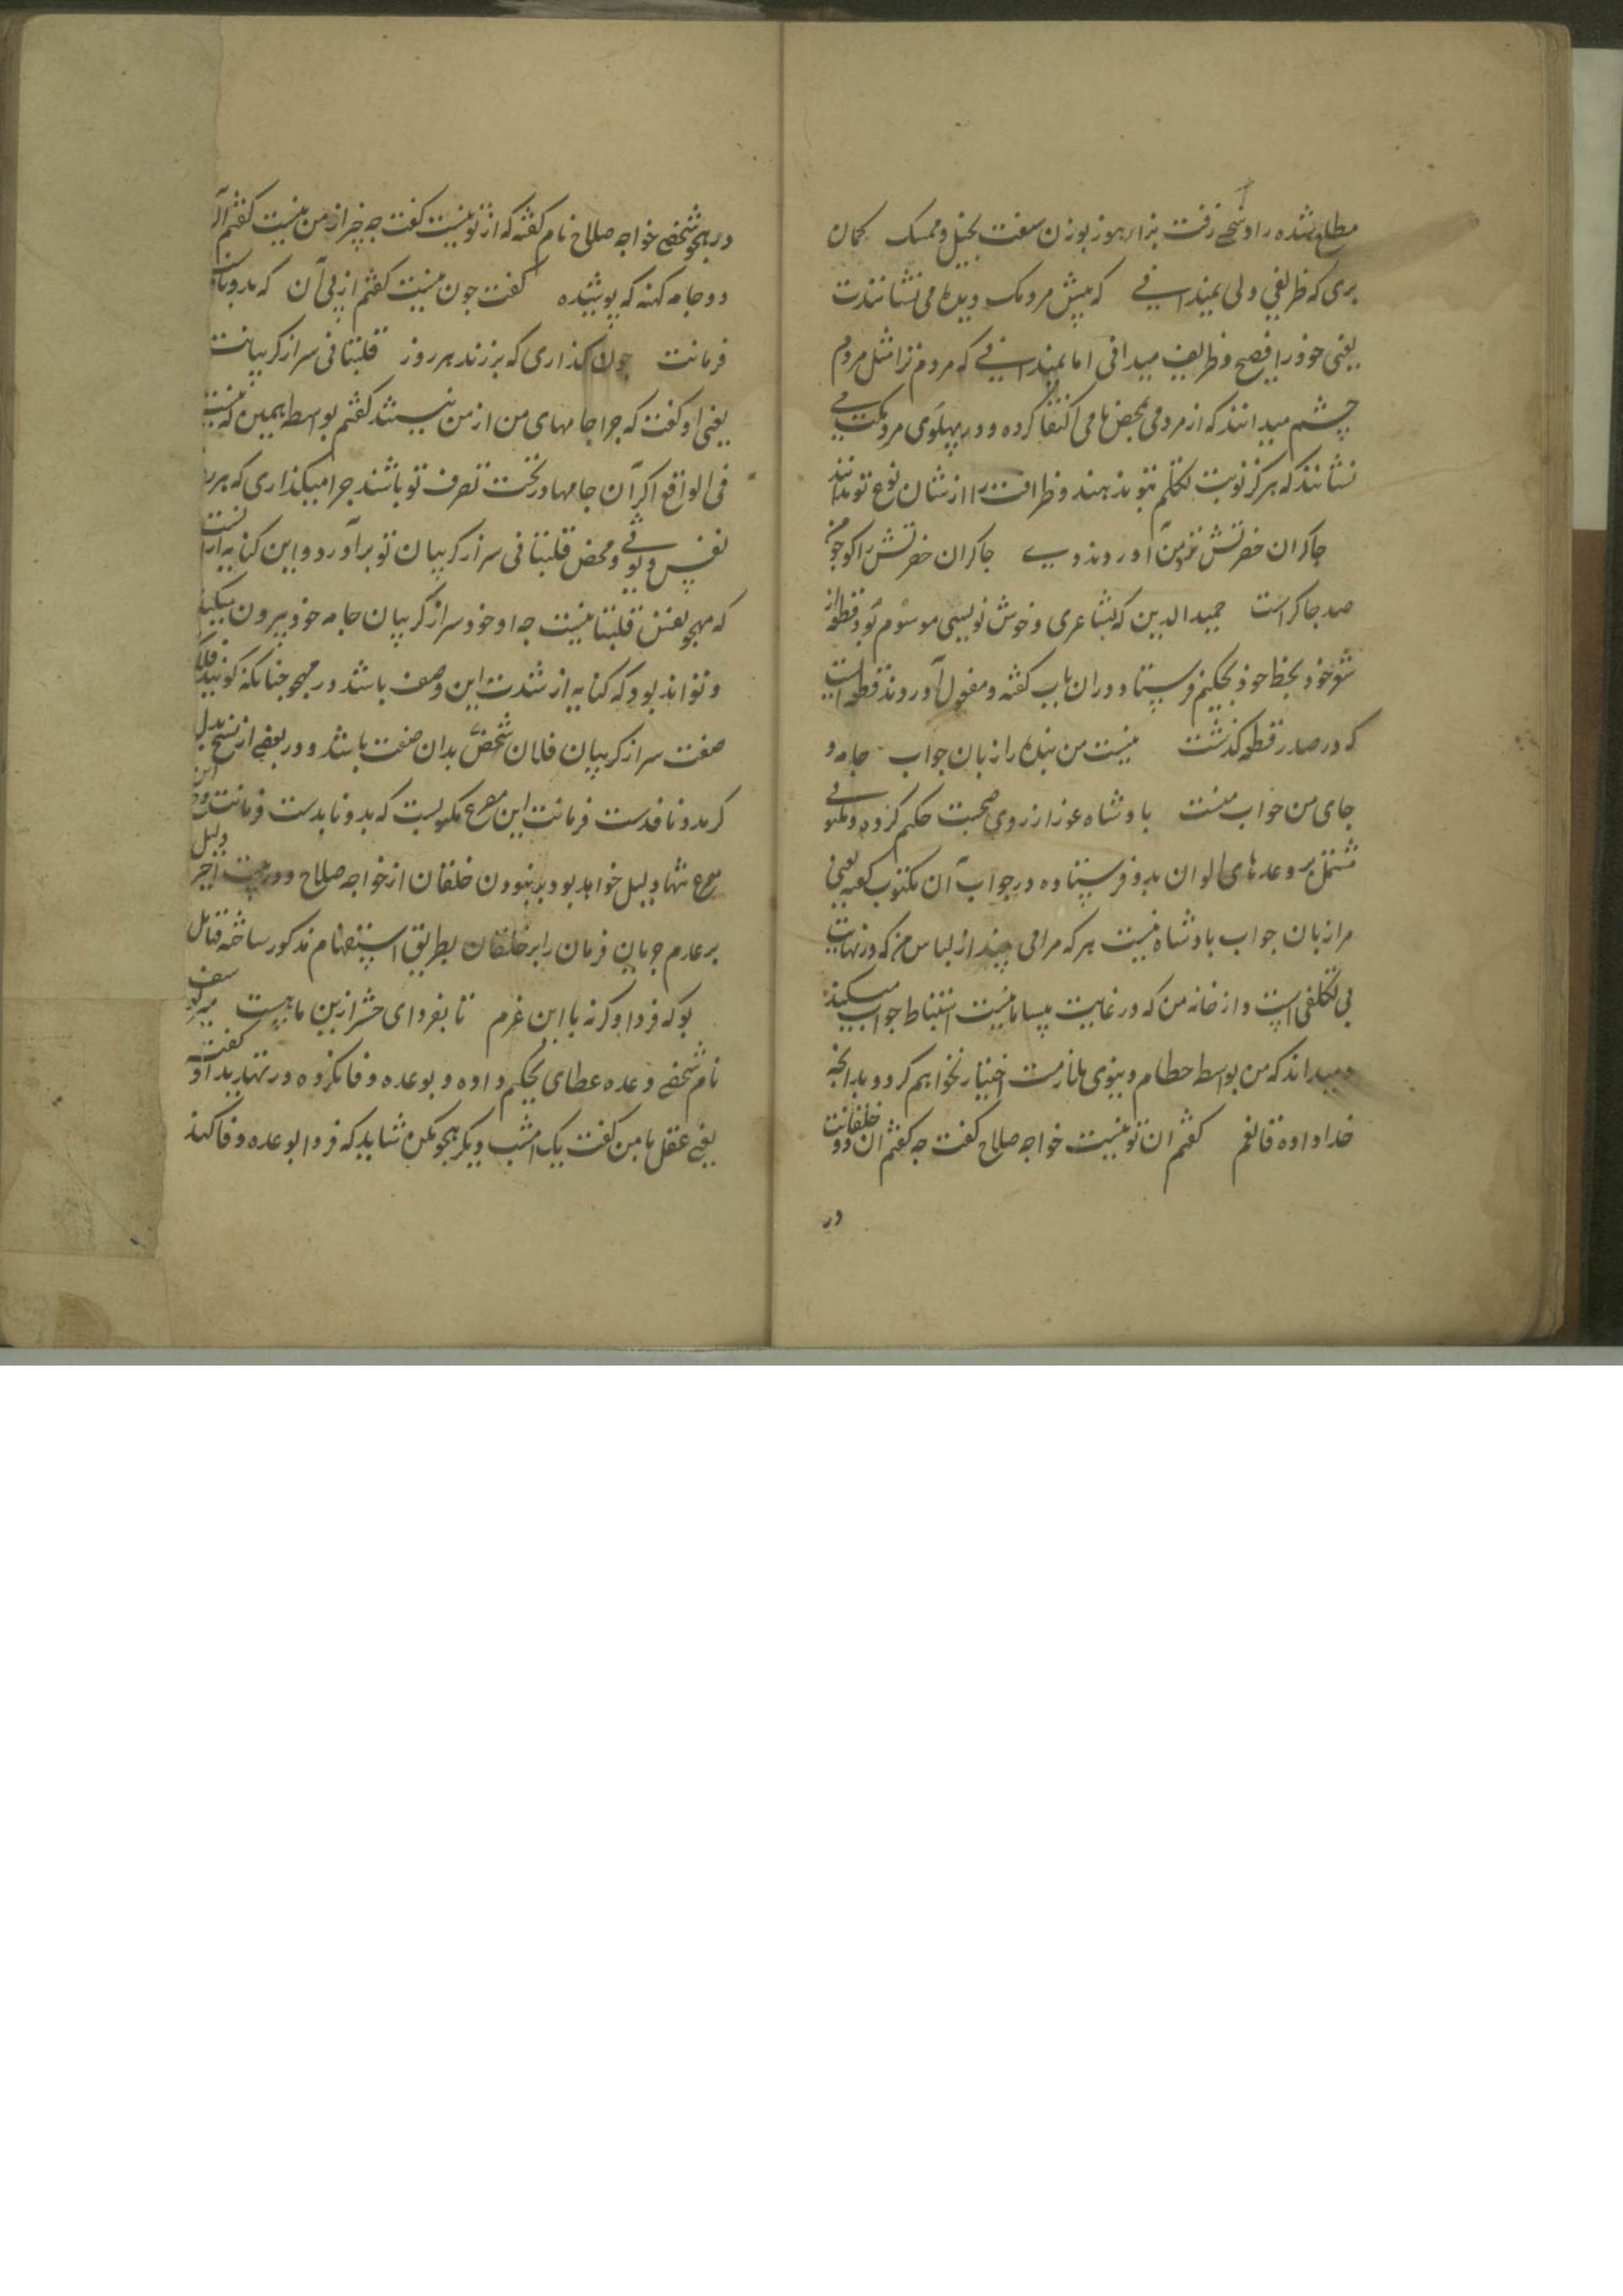 مطلع شده را و شحی زفت نزار هموز بوزن سفت بخیل و ممسک کمان
بری که ظریفی ولی نمیدانی که پیش مردمک دیدها می نشانندت
یعنی خود را فصیح و ظریف میدانی اما نمیدانی که مردم ترا مثل مردم
چشم میدانند که از مردمی بمحض نامی اکتفا کرده و در پهلوی مردمکت می
نشانند که هرکز نوبت تکلم بتو ندهند و ظرافت را از شان نوع تو ندانند
چاکران حضرتش نزد من آوردند دی چاکران حضرتش را کو چو من
صد چاکر است حمید الدین که بشاعری و خوش نویسی موسوم بود قطعه از
شعر خود بخط خود بحکیم فرستاد و در آن باب کفته و مفعول آوردند قطعه است
که در صدر قطعه کذشت نیست من بنده را زبان جواب جامه و
جای من جواب منست پادشاه غور از روی صحبت حکیم کرده و مکتوبی
مشتمل بر وعدهای الوان بدو فرستاده در جواب آن مکتوب کفته یعنی
مرا زبان جواب پادشاه نیست هر که مرا می بیند از لباس من که در نهایت
بی تکلفی است و از خانه من که در غایت بیسامانیست استنباط جواب میکند
و میداند که من بواسطه حطام دنیوی ملازمت اختیار نخواهم کرد و بدانچه
خدا داده قانعم کفتم آن تو نیست خواجه صلاح کفت چه کفتم آن دو خلقانت
در
در هجو شخصی خواجه صلاح نام کفته که از تو نیست کفت چه چیز از من نیست کفتم آن
دو جامه کهنه که پوشیده کفت چون نیست کفتم از پی آن که بدو نافذ
فرمانت چون کذاری که برزند هر روز قلتبانی سر از کریبانت
یعنی او کفت که چرا جامهای من از من نیستند کفتم بواسطه همین که نیست
فی الواقع اکر آن جامها در تحت تصرف تو باشند چرا میکذاری که هر روز
نفس دیوثی و محض قلتبانی سر از کریبان تو برآورد و این کنایه از آنست
که مهجو بعینه قلتبانیست چه او خود سر از کریبان جامه خود بیرون میکند
و تواند بود که کنایه از شدت این وصف باشد در مهجو چنانکه کویند فلان
صفت سر از کریبان فلان شخص بدان صفت باشد و در بعضی از نسخ بدل
که بدو نافذست فرمانت این مصرع مکتوبست که بدو نابدست فرمانت و این
مصرع تنها دلیل خواهد بود بر نبودن خلقان از خواجه صلاح و در بیت اخیر دلیل
بر عدم جریان فرمان را بر خلقان بطریق استفهام مذکور ساخته قتال
بو که فردا و کرنه با این غرم تا بفردای حشر ازین ما بیست سیف
نام شخصی وعده عطای بحکیم داده و بوعده وفا نکرده در تهدید او کفته
یعنی عقل با من کفت یک امشب دیکر هجو مکن شاید که فردا بوعده وفا کند